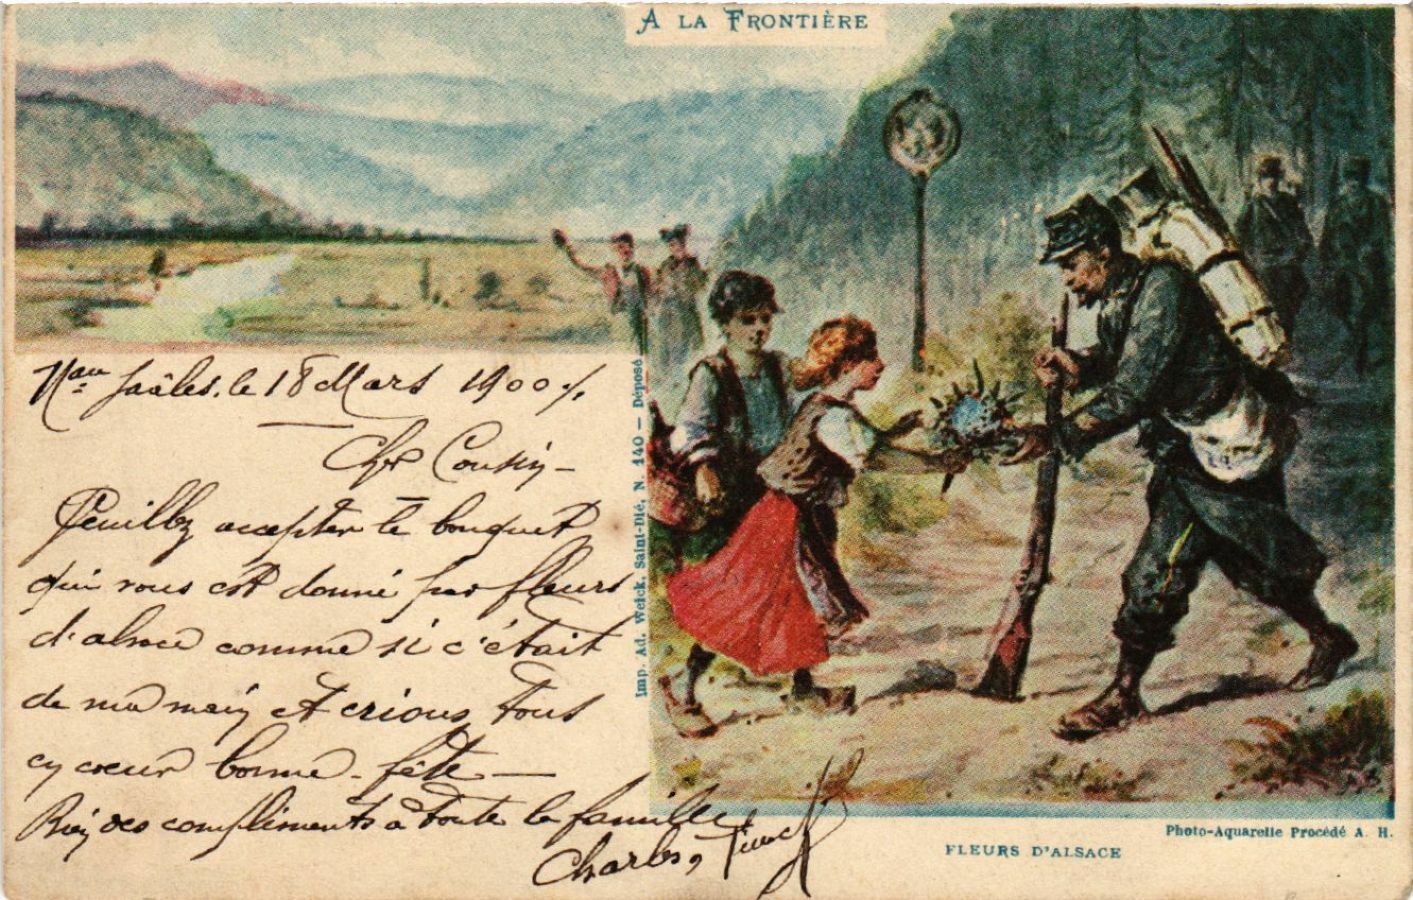 A LA FRONTIÈRE
Saâles, le 18 Mars 1900
Cher Cousin –
Veuillez accepter le bouquet
qui vous est donné par fleurs
d'alsace comme si c'était
de ma main et crions tous
en coeur bonne – fête –
Bien des compliments à toute la famille
Charles
Imp. Ad. Weick, Saint-Dié, N. 140 – Déposé
Photo-Aquarelle Procédé A. H.
FLEURS D'ALSACE